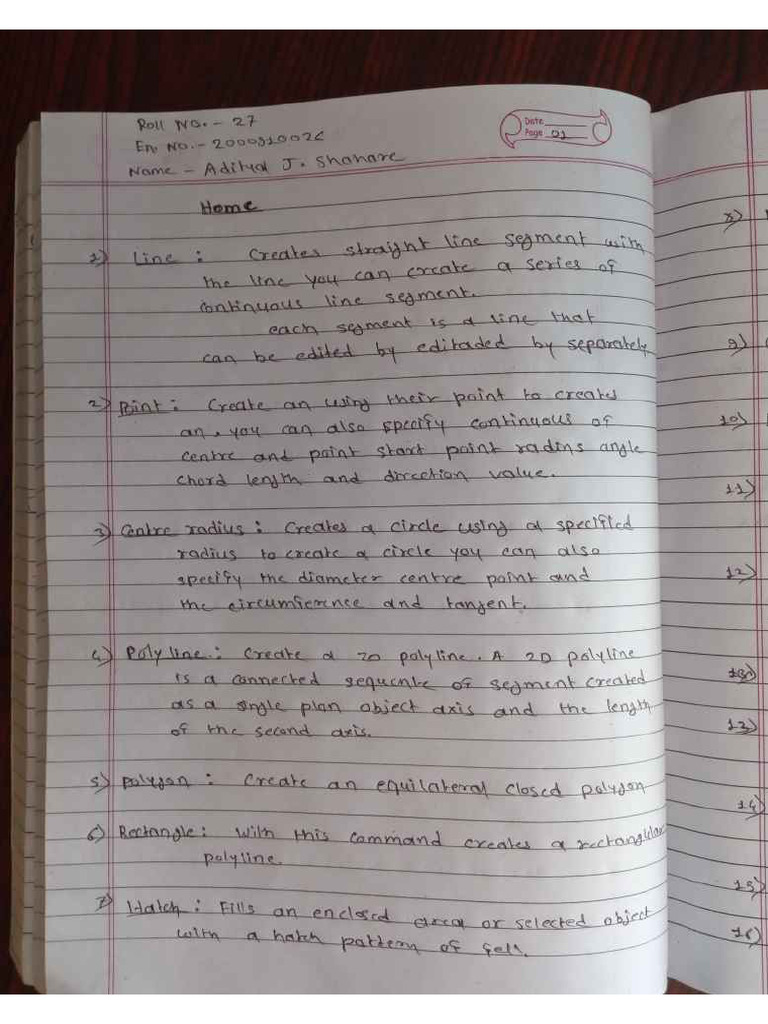 Roll No. - 27
En. No. - 2000910026
Name - Aditya J. Shahare
Date
Page 01
Home
1) Line : Creates straight line segment with
the line you can create a series of
continuous line segment.
each segment is a line that
can be edited by editaded by separately
2) Point : Create an using their point to creates
an, you can also specify continuous of
centre and point start point radins angle
chord length and direction value.
3) Centre radius : Creates a circle using a specified
radius to create a circle you can also
specify the diameter centre point and
the circumference and tangent.
4) Poly line : Create a 2D polyline. A 2D polyline
is a connected sequence of segment created
as a single plan object axis and the length
of the second axis.
5) Polygon : Create an equilateral closed polygon
6) Rectangle : With this command creates a rectangular
polyline.
7) Hatch : Fills an enclosed area or selected object
with a hatch pattern of
8)
9)
10)
11)
12)
13)
14)
15)
16)